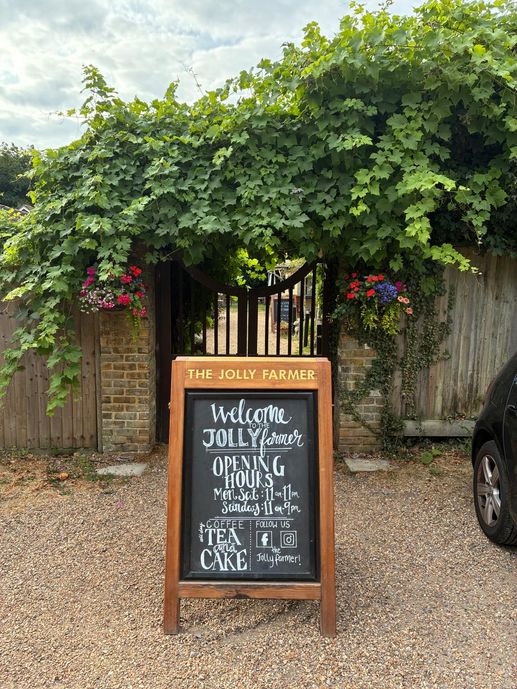 THE JOLLY FARMER
Welcome
TO THE
JOLLY farmer
OPENING
HOURS
Mon-Sat: 11am-11pm
Sunday: 11am-9pm
all day
COFFEE
TEA
and
CAKE
FOLLOW US
the
Jolly farmer!